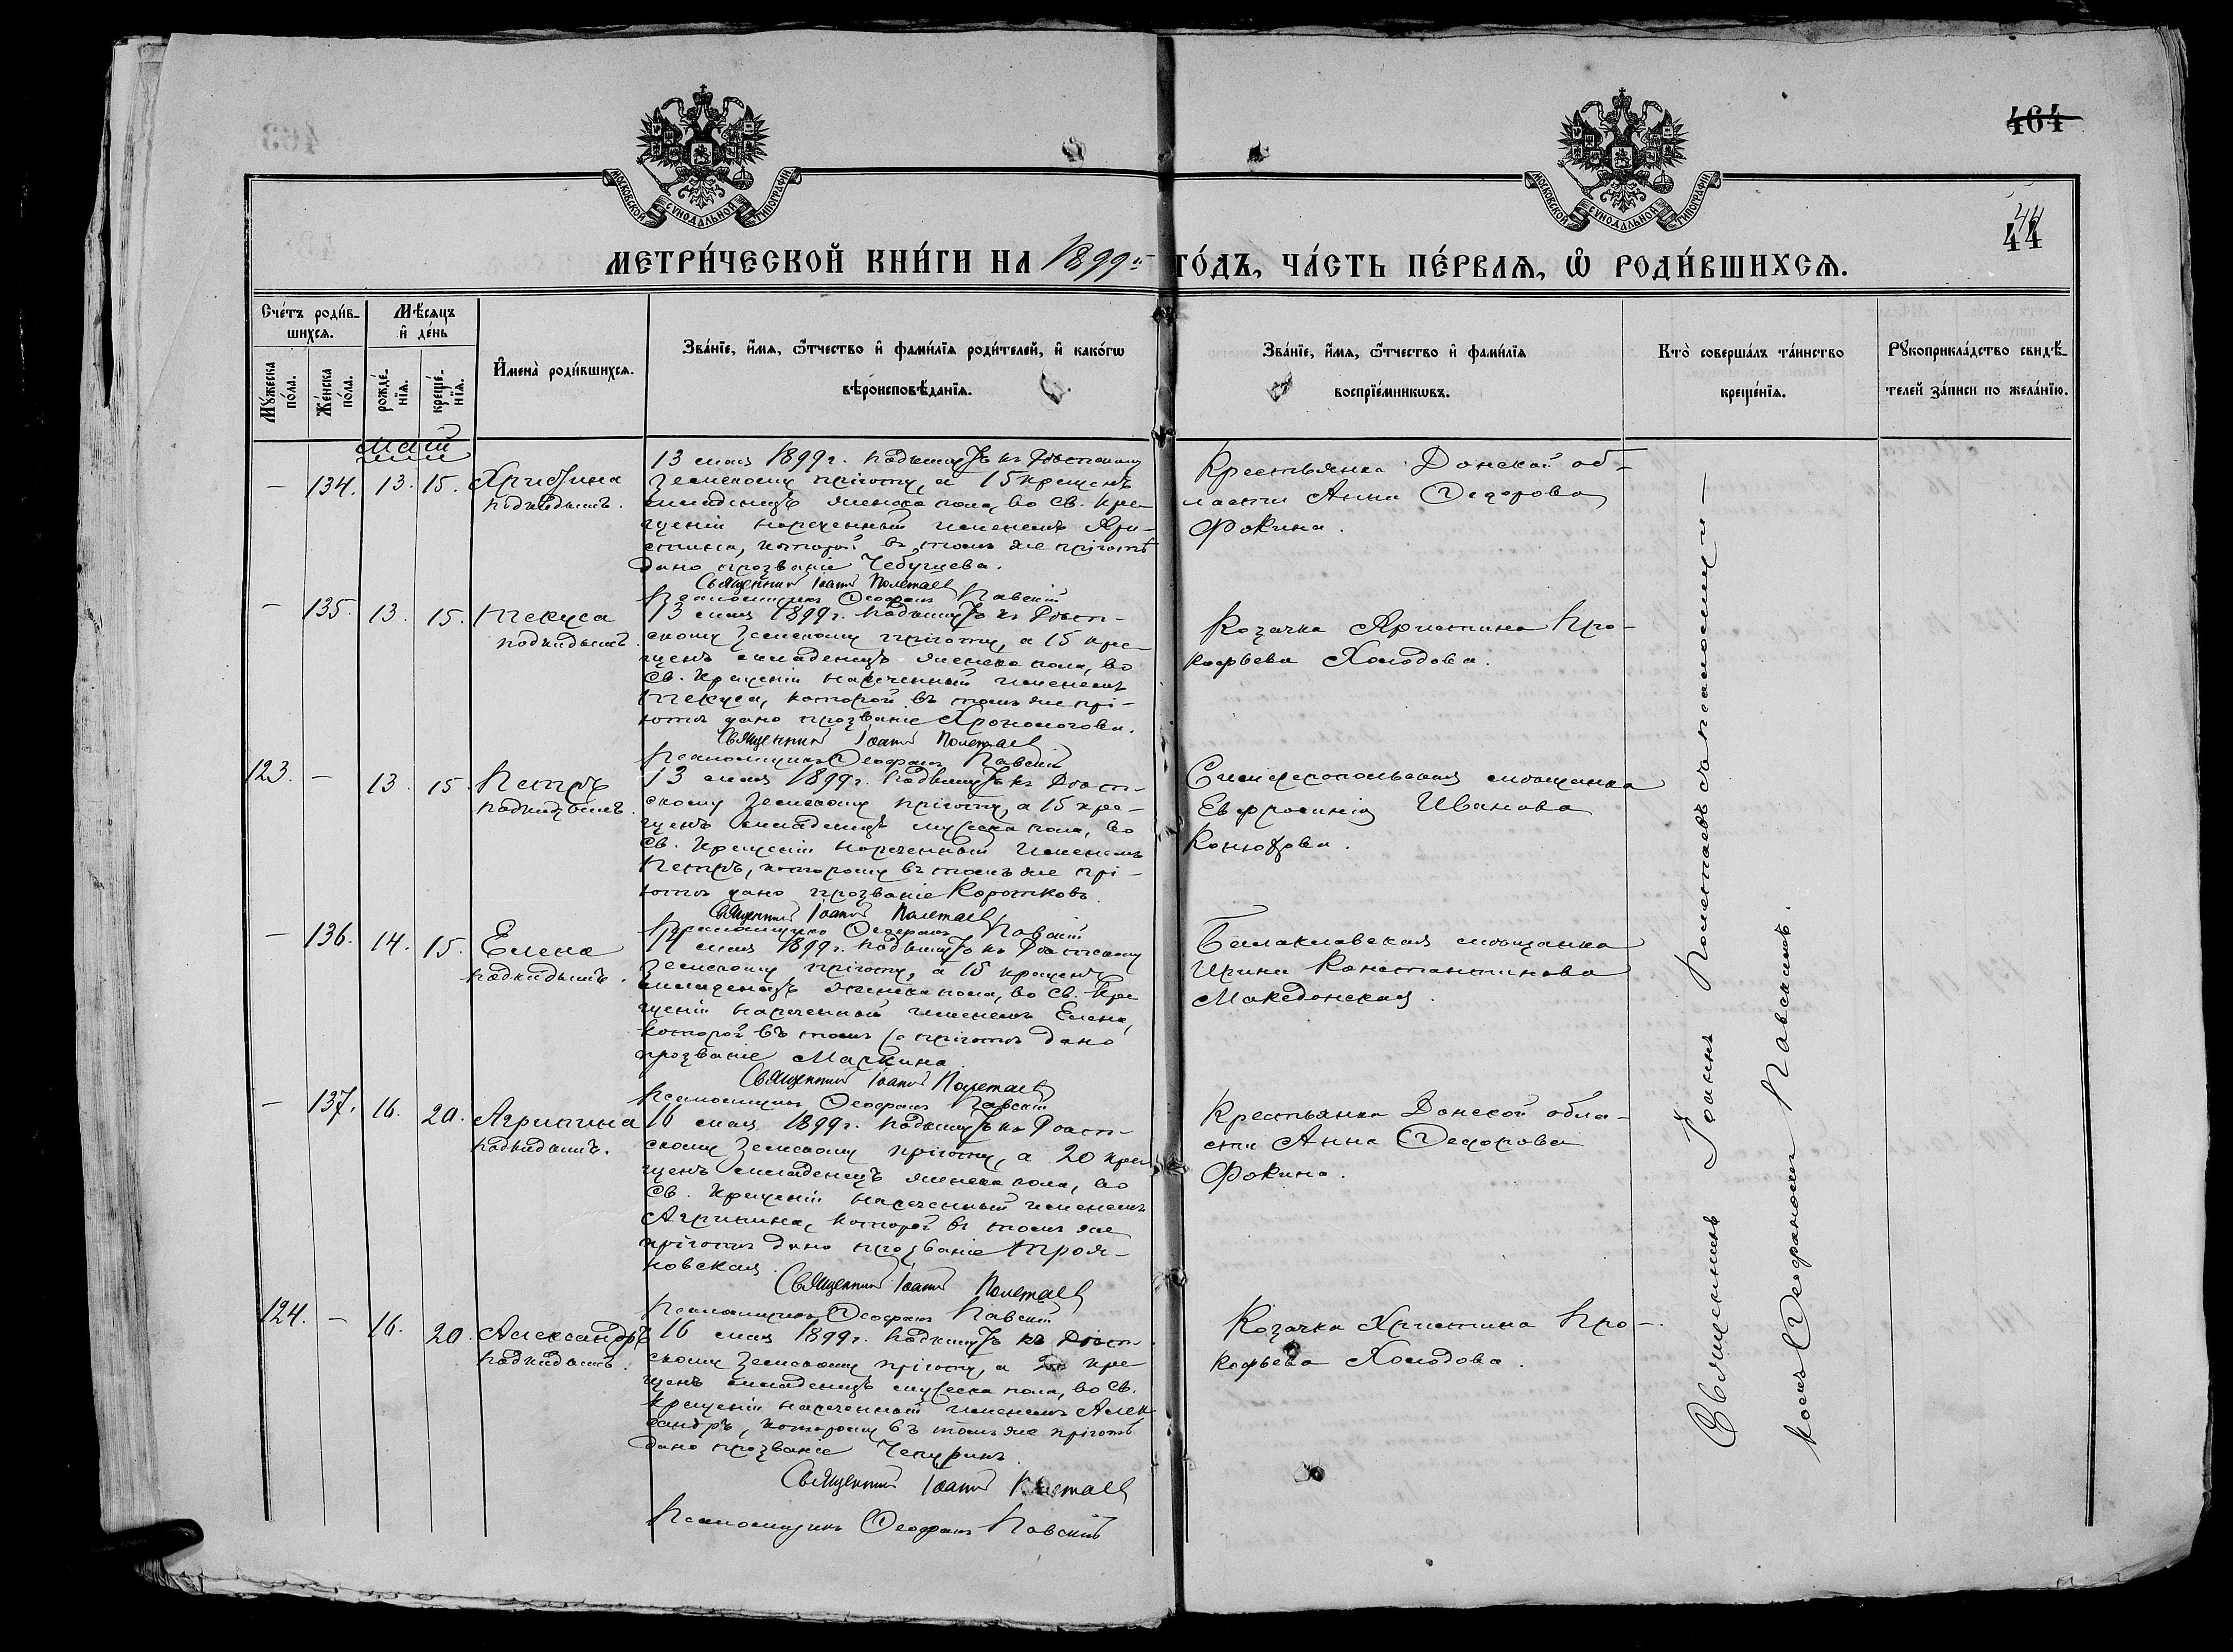 464
44
44
МОСКОВСКОЙ СУНОДАЛЬНОЙ ТИПОГРАФІИ
МОСКОВСКОЙ СУНОДАЛЬНОЙ ТИПОГРАФІИ
МЕТРИ́ЧЕСКОЙ КНИ́ГИ НА 1899й ГО́ДЪ, ЧА́СТЬ ПЕ́РВАѦ, Ѡ҆ РОДИ́ВШИХСѦ.
Сче́тъ роди́в-
шихсѧ.
Мꙋ́жеска по́ла.
Же́нска по́ла.
Мѣ́сѧцъ
и҆ де́нь
рожде́-
нїѧ.
креще́-
нїѧ.
И҆мена̀ роди́вшихсѧ.
Зва́нїе, и҆́мѧ, ѻ҆́тчество и҆ фами́лїѧ роди́телей, и҆ како́гѡ
вѣроисповѣ́данїѧ.
Зва́нїе, и҆́мѧ, ѻ҆́тчество и҆ фами́лїѧ
воспрїе́мникѡвъ.
Кто̀ соверша́лъ та́инство
креще́нїѧ.
Рꙋкоприкла́дство свидѣ́-
телей за́писи по жела́нїю.
Май
— 134. 13. 15. Христина
подкидышъ.
13 мая 1899 г. подкинутъ къ Ростскому
земскому пріюту, а 15 крещенъ
младенецъ женска пола, во св. кре-
щеніи нареченный именемъ Хри-
стина, которой въ томъ же пріютѣ
дано прозваніе Чебучева.
Священникъ Іоаннъ Полетаевъ
Псаломщикъ Ѳеофанъ Павскій
Крестьянка Донской об-
ласти Анна Ѳедорова
Фокина.
— 135. 13. 15. Текуса
подкидышъ.
13 мая 1899 г. подкинутъ къ Рост-
скому земскому пріюту, а 15 кре-
щенъ младенецъ женска пола, во
св. крещеніи нареченный именемъ
Текуса, которой въ томъ же прі-
ютѣ дано прозваніе Хронологова.
Священникъ Іоаннъ Полетаевъ
Псаломщикъ Ѳеофанъ Павскій
Козачка Христина Про-
кофьева Холодова.
123. — 13. 15. Петръ
подкидышъ.
13 мая 1899 г. подкинутъ къ Рост-
скому земскому пріюту, а 15 кре-
щенъ младенецъ мужеска пола, во
св. крещеніи нареченный именемъ
Петръ, которому въ томъ же прі-
ютѣ дано прозваніе Коротковъ.
Священникъ Іоаннъ Полетаевъ
Псаломщикъ Ѳеофанъ Павскій
Симферопольская мѣщанка
Евфросинія Иванова
Конюхова.
— 136. 14. 15. Елена
подкидышъ.
14 мая 1899 г. подкинутъ къ Ростскому
земскому пріюту, а 15 крещенъ
младенецъ женска пола, во св. кре
щеніи нареченный именемъ Елена,
которой въ томъ же пріютѣ дано
прозваніе Маркина.
Священникъ Іоаннъ Полетаевъ
Псаломщикъ Ѳеофанъ Павскій
Балаклавская мѣщанка
Ирина Константинова
Македонская.
— 137. 16. 20. Агрипина
подкидышъ.
16 мая 1899 г. подкинутъ къ Рост-
скому земскому пріюту, а 20 кре
щенъ младенецъ женска пола, во
св. крещеніи нареченный именемъ
Агрипина, которой въ томъ же
пріютѣ дано прозваніе Троя-
новская.
Священникъ Іоаннъ Полетаевъ
Псаломщикъ Ѳеофанъ Павскій
Крестьянка Донской обла-
сти Анна Ѳедорова
Фокина.
124. — 16. 20. Александръ
подкидышъ.
16 мая 1899 г. подкинутъ къ Рост-
скому земскому пріюту, а 20 кре-
щенъ младенецъ мужеска пола, во св.
крещеніи нареченный именемъ Алек
сандръ, которому въ томъ же пріютѣ
дано прозваніе Чепуринъ.
Священникъ Іоаннъ Полетаевъ
Псаломщикъ Ѳеофанъ Павскій
Козачка Христина Про-
кофьева Холодова.
Священникъ Іоаннъ Полетаевъ съ псаломщи-
комъ Ѳеофаномъ Павскимъ.